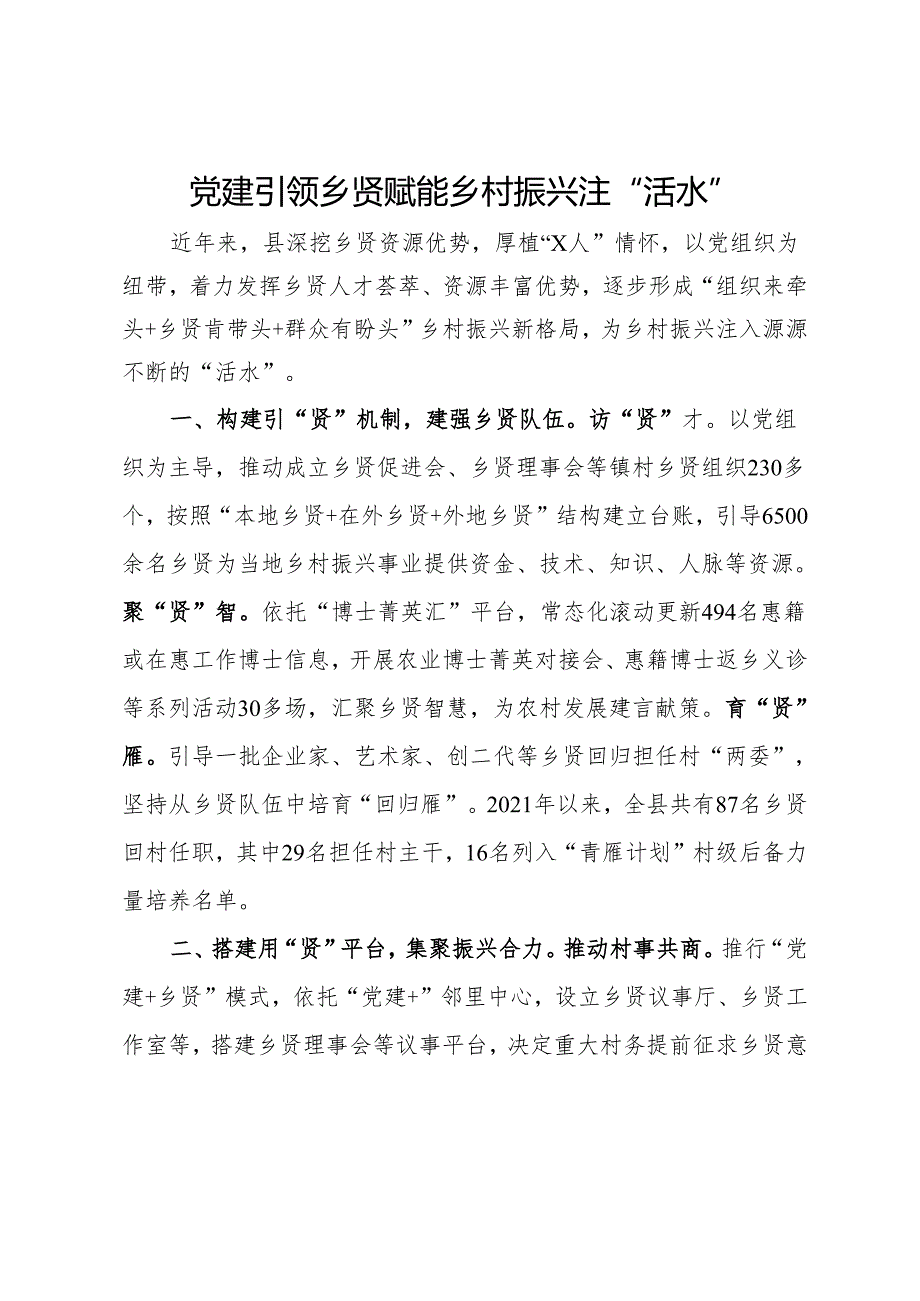 党建引领乡贤赋能乡村振兴注“活水”
近年来，县深挖乡贤资源优势，厚植“X人”情怀，以党组织为
纽带，着力发挥乡贤人才荟萃、资源丰富优势，逐步形成“组织来牵
头+乡贤肯带头+群众有盼头”乡村振兴新格局，为乡村振兴注入源源
不断的“活水”。
一、构建引“贤”机制，建强乡贤队伍。访“贤”才。以党组
织为主导，推动成立乡贤促进会、乡贤理事会等镇村乡贤组织230多
个，按照“本地乡贤+在外乡贤+外地乡贤”结构建立台账，引导6500
余名乡贤为当地乡村振兴事业提供资金、技术、知识、人脉等资源。
聚“贤”智。依托“博士菁英汇”平台，常态化滚动更新494名惠籍
或在惠工作博士信息，开展农业博士菁英对接会、惠籍博士返乡义诊
等系列活动30多场，汇聚乡贤智慧，为农村发展建言献策。育“贤”
雁。引导一批企业家、艺术家、创二代等乡贤回归担任村“两委”，
坚持从乡贤队伍中培育“回归雁”。2021年以来，全县共有87名乡贤
回村任职，其中29名担任村主干，16名列入“青雁计划”村级后备力
量培养名单。
二、搭建用“贤”平台，集聚振兴合力。推动村事共商。推行“党
建+乡贤”模式，依托“党建+”邻里中心，设立乡贤议事厅、乡贤工
作室等，搭建乡贤理事会等议事平台，决定重大村务提前征求乡贤意